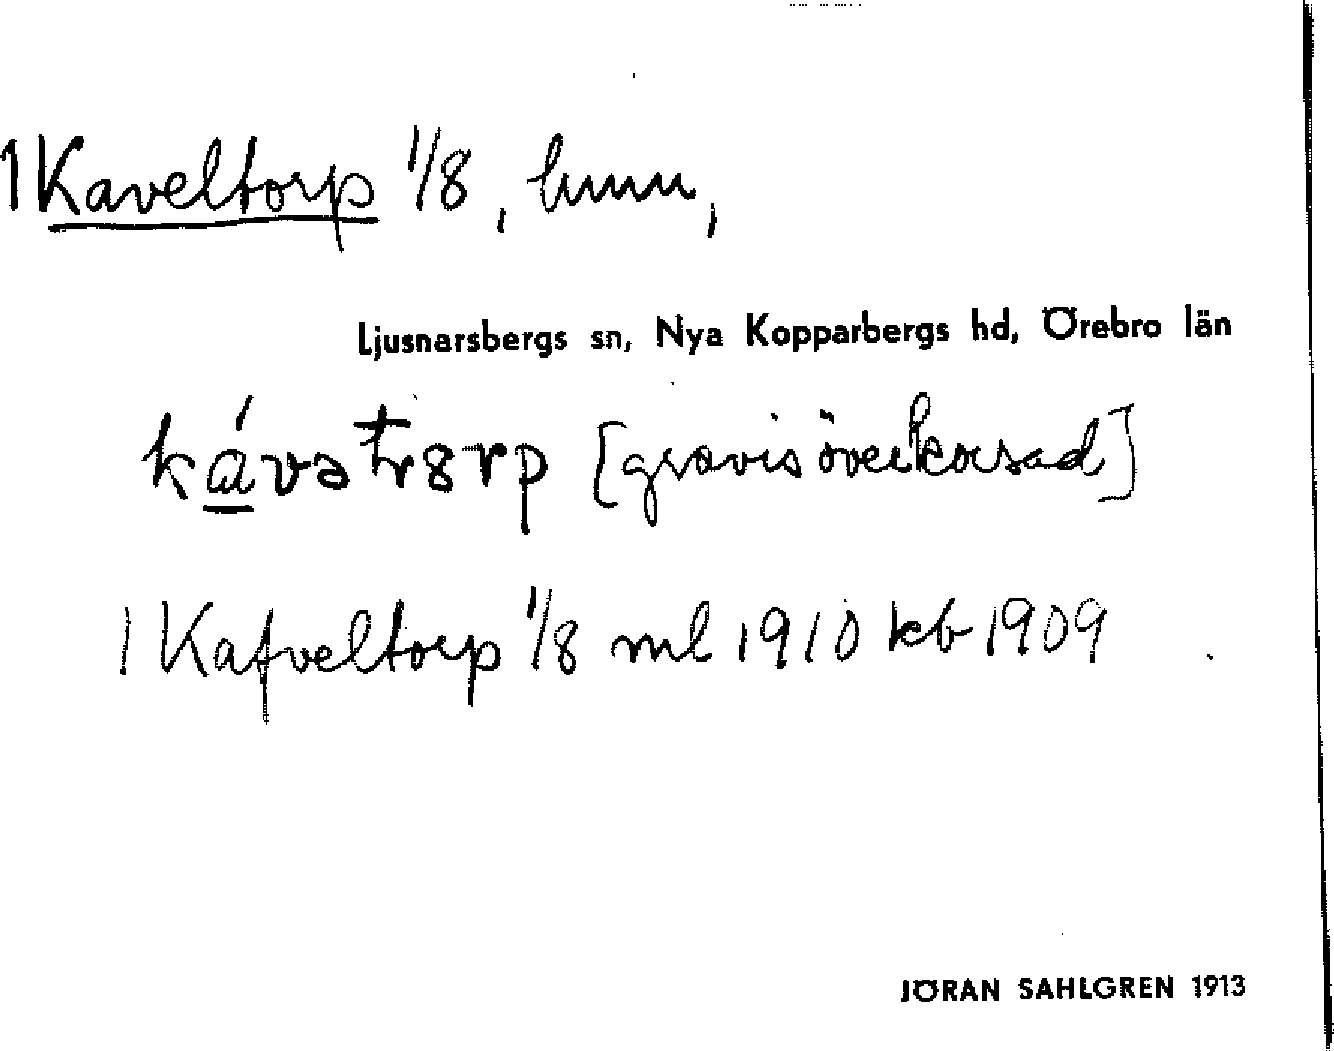 1 Kaveltorp 1/8, hmn,
Ljusnarsbergs sn, Nya Kopparbergs hd, Örebro län
[gravis överkorsad]
1 Kafveltorp 1/8 ml 1910 kb 1909
JÖRAN SAHLGREN 1913